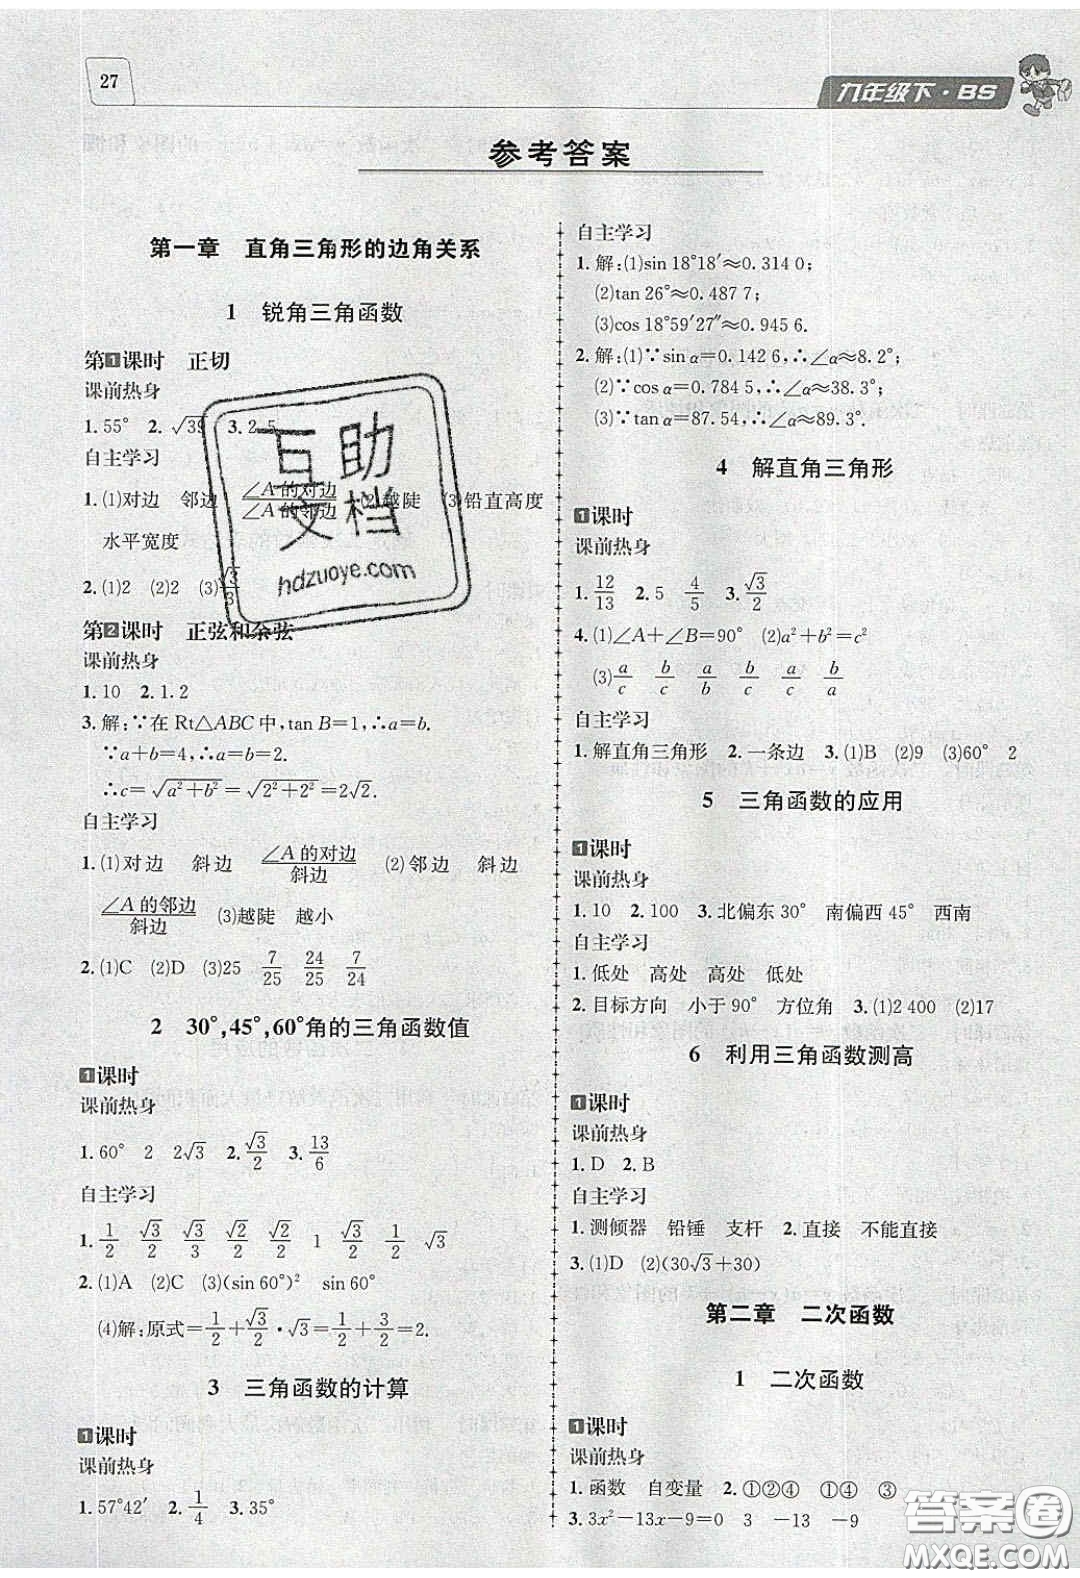 27
九年级下·BS
参考答案
第一章 直角三角形的边角关系
1 锐角三角函数
第1课时 正切
课前热身
1.55° 2.√39 3.2.5
自主学习
1.(1)对边 邻边 ∠A的对边/∠A的邻边 (2)越陡 (3)铅直高度
水平宽度
2.(1)2 (2)2 (3)√3/3
第2课时 正弦和余弦
课前热身
1.10 2.1.2
3.解:∵在Rt△ABC中,tan B=1,∴a=b.
∵a+b=4,∴a=b=2.
∴c=√(a²+b²)=√(2²+2²)=2√2.
自主学习
1.(1)对边 斜边 ∠A的对边/斜边 (2)邻边 斜边
∠A的邻边/斜边 (3)越陡 越小
2.(1)C (2)D (3)25 7/25 24/25 7/24
2 30°,45°,60°角的三角函数值
1课时
课前热身
1.60° 2 2√3 2.√3/2 3.13/6
自主学习
1.1/2 √3/2 √3/3 √2/2 √2/2 1 √3/2 1/2 √3
2.(1)A (2)C (3)(sin 60°)² sin 60°
(4)解:原式=1/2+√3/2·√3=1/2+3/2=2.
3 三角函数的计算
1课时
课前热身
1.57°42′ 2.1/4 3.35°
自主学习
1.解:(1)sin 18°18′≈0.314 0;
(2)tan 26°≈0.487 7;
(3)cos 18°59′27″≈0.945 6.
2.解:(1)∵sin α=0.142 6,∴∠α≈8.2°;
(2)∵cos α=0.784 5,∴∠α≈38.3°;
(3)∵tan α=87.54,∴∠α≈89.3°.
4 解直角三角形
1课时
课前热身
1.12/13 2.5 4/5 3.√3/2
4.(1)∠A+∠B=90° (2)a²+b²=c²
(3)a/c b/c a/b b/c a/c b/a
自主学习
1.解直角三角形 2.一条边 3.(1)B (2)9 (3)60° 2
5 三角函数的应用
1课时
课前热身
1.10 2.100 3.北偏东30° 南偏西45° 西南
自主学习
1.低处 高处 高处 低处
2.目标方向 小于90° 方位角 3.(1)2 400 (2)17
6 利用三角函数测高
1课时
课前热身
1.D 2.B
自主学习
1.测倾器 铅锤 支杆 2.直接 不能直接
3.(1)D (2)(30√3+30)
第二章 二次函数
1 二次函数
1课时
课前热身
1.函数 自变量 2.①②④ ①④ ③
3.3x²-13x-9=0 3 -13 -9
互助
文档
hdzuoye.com
答案圈
MXQE.COM